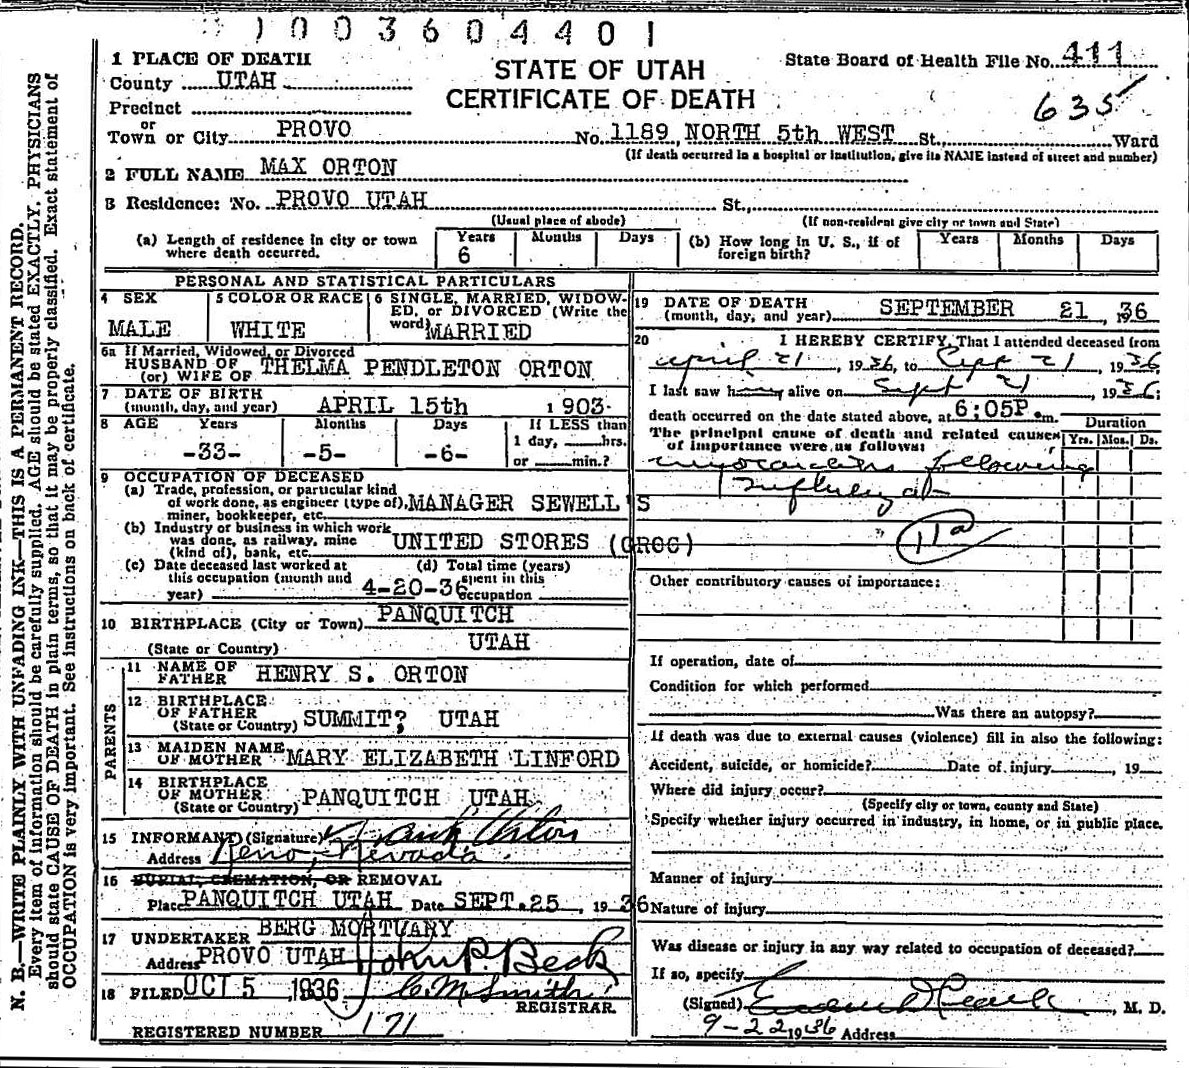 1003604401
1 PLACE OF DEATH
County UTAH
STATE OF UTAH
CERTIFICATE OF DEATH
State Board of Health File No. 411
635
Precinct
or
Town or City PROVO No. 1189 NORTH 5th WEST St., Ward
(If death occurred in a hospital or institution, give its NAME instead of street and number)
2 FULL NAME MAX ORTON
3 Residence: No. PROVO UTAH St.,
(Usual place of abode) (If non-resident give city or town and State)
(a) Length of residence in city or town where death occurred. Years 6 Months Days (b) How long in U. S., if of foreign birth? Years Months Days
PERSONAL AND STATISTICAL PARTICULARS
4 SEX MALE
5 COLOR OR RACE WHITE
6 SINGLE, MARRIED, WIDOW-
ED, or DIVORCED (Write the
word) MARRIED
6a If Married, Widowed, or Divorced
HUSBAND OF
(or) WIFE OF THELMA PENDLETON ORTON
7 DATE OF BIRTH
(month, day, and year) APRIL 15th 1903
8 AGE Years -33- Months -5- Days -6- If LESS than
1 day, hrs.
or min.?
9 OCCUPATION OF DECEASED
(a) Trade, profession, or particular kind
of work done, as engineer (type of), MANAGER SEWELL'S
miner, bookkeeper, etc.
(b) Industry or business in which work
was done, as railway, mine UNITED STORES (GROC)
(kind of), bank, etc.
(c) Date deceased last worked at
this occupation (month and
year) 4-20-36
(d) Total time (years)
spent in this
occupation
10 BIRTHPLACE (City or Town) PANQUITCH
(State or Country) UTAH
PARENTS
11 NAME OF
FATHER HENRY S. ORTON
12 BIRTHPLACE
OF FATHER
(State or Country) SUMMIT? UTAH
13 MAIDEN NAME
OF MOTHER MARY ELIZABETH LINFORD
14 BIRTHPLACE
OF MOTHER
(State or Country) PANQUITCH UTAH
15 INFORMANT (Signature) Frank Orton
Address Reno, Nevada.
16 BURIAL, CREMATION, OR REMOVAL
Place PANQUITCH UTAH Date SEPT. 25, 1936
17 UNDERTAKER BERG MORTUARY
Address PROVO UTAH John P. Beck
18 FILED OCT 5 1936 C. M. Smith
REGISTRAR
REGISTERED NUMBER 171
19 DATE OF DEATH
(month, day, and year) SEPTEMBER 21, 1936
20 I HEREBY CERTIFY, That I attended deceased from
April 21, 1936, to Sept 21, 1936
I last saw h alive on Sept 21, 1936;
death occurred on the date stated above, at 6:05P.m.
The principal cause of death and related causes
of importance were as follows:
Duration
Yrs. Mos. Ds.
myocarditis following
Influenza
11a
Other contributory causes of importance:
If operation, date of
Condition for which performed
Was there an autopsy?
If death was due to external causes (violence) fill in also the following:
Accident, suicide, or homicide? Date of injury, 19
Where did injury occur?
(Specify city or town, county and State)
Specify whether injury occurred in industry, in home, or in public place.
Manner of injury
Nature of injury
Was disease or injury in any way related to occupation of deceased?
If so, specify
(Signed) M. D.
9-22 1936 Address
N. B.—WRITE PLAINLY WITH UNFADING INK—THIS IS A PERMANENT RECORD.
Every item of information should be carefully supplied. AGE should be stated EXACTLY. PHYSICIANS
should state CAUSE OF DEATH in plain terms, so that it may be properly classified. Exact statement of
OCCUPATION is very important. See instructions on back of certificate.